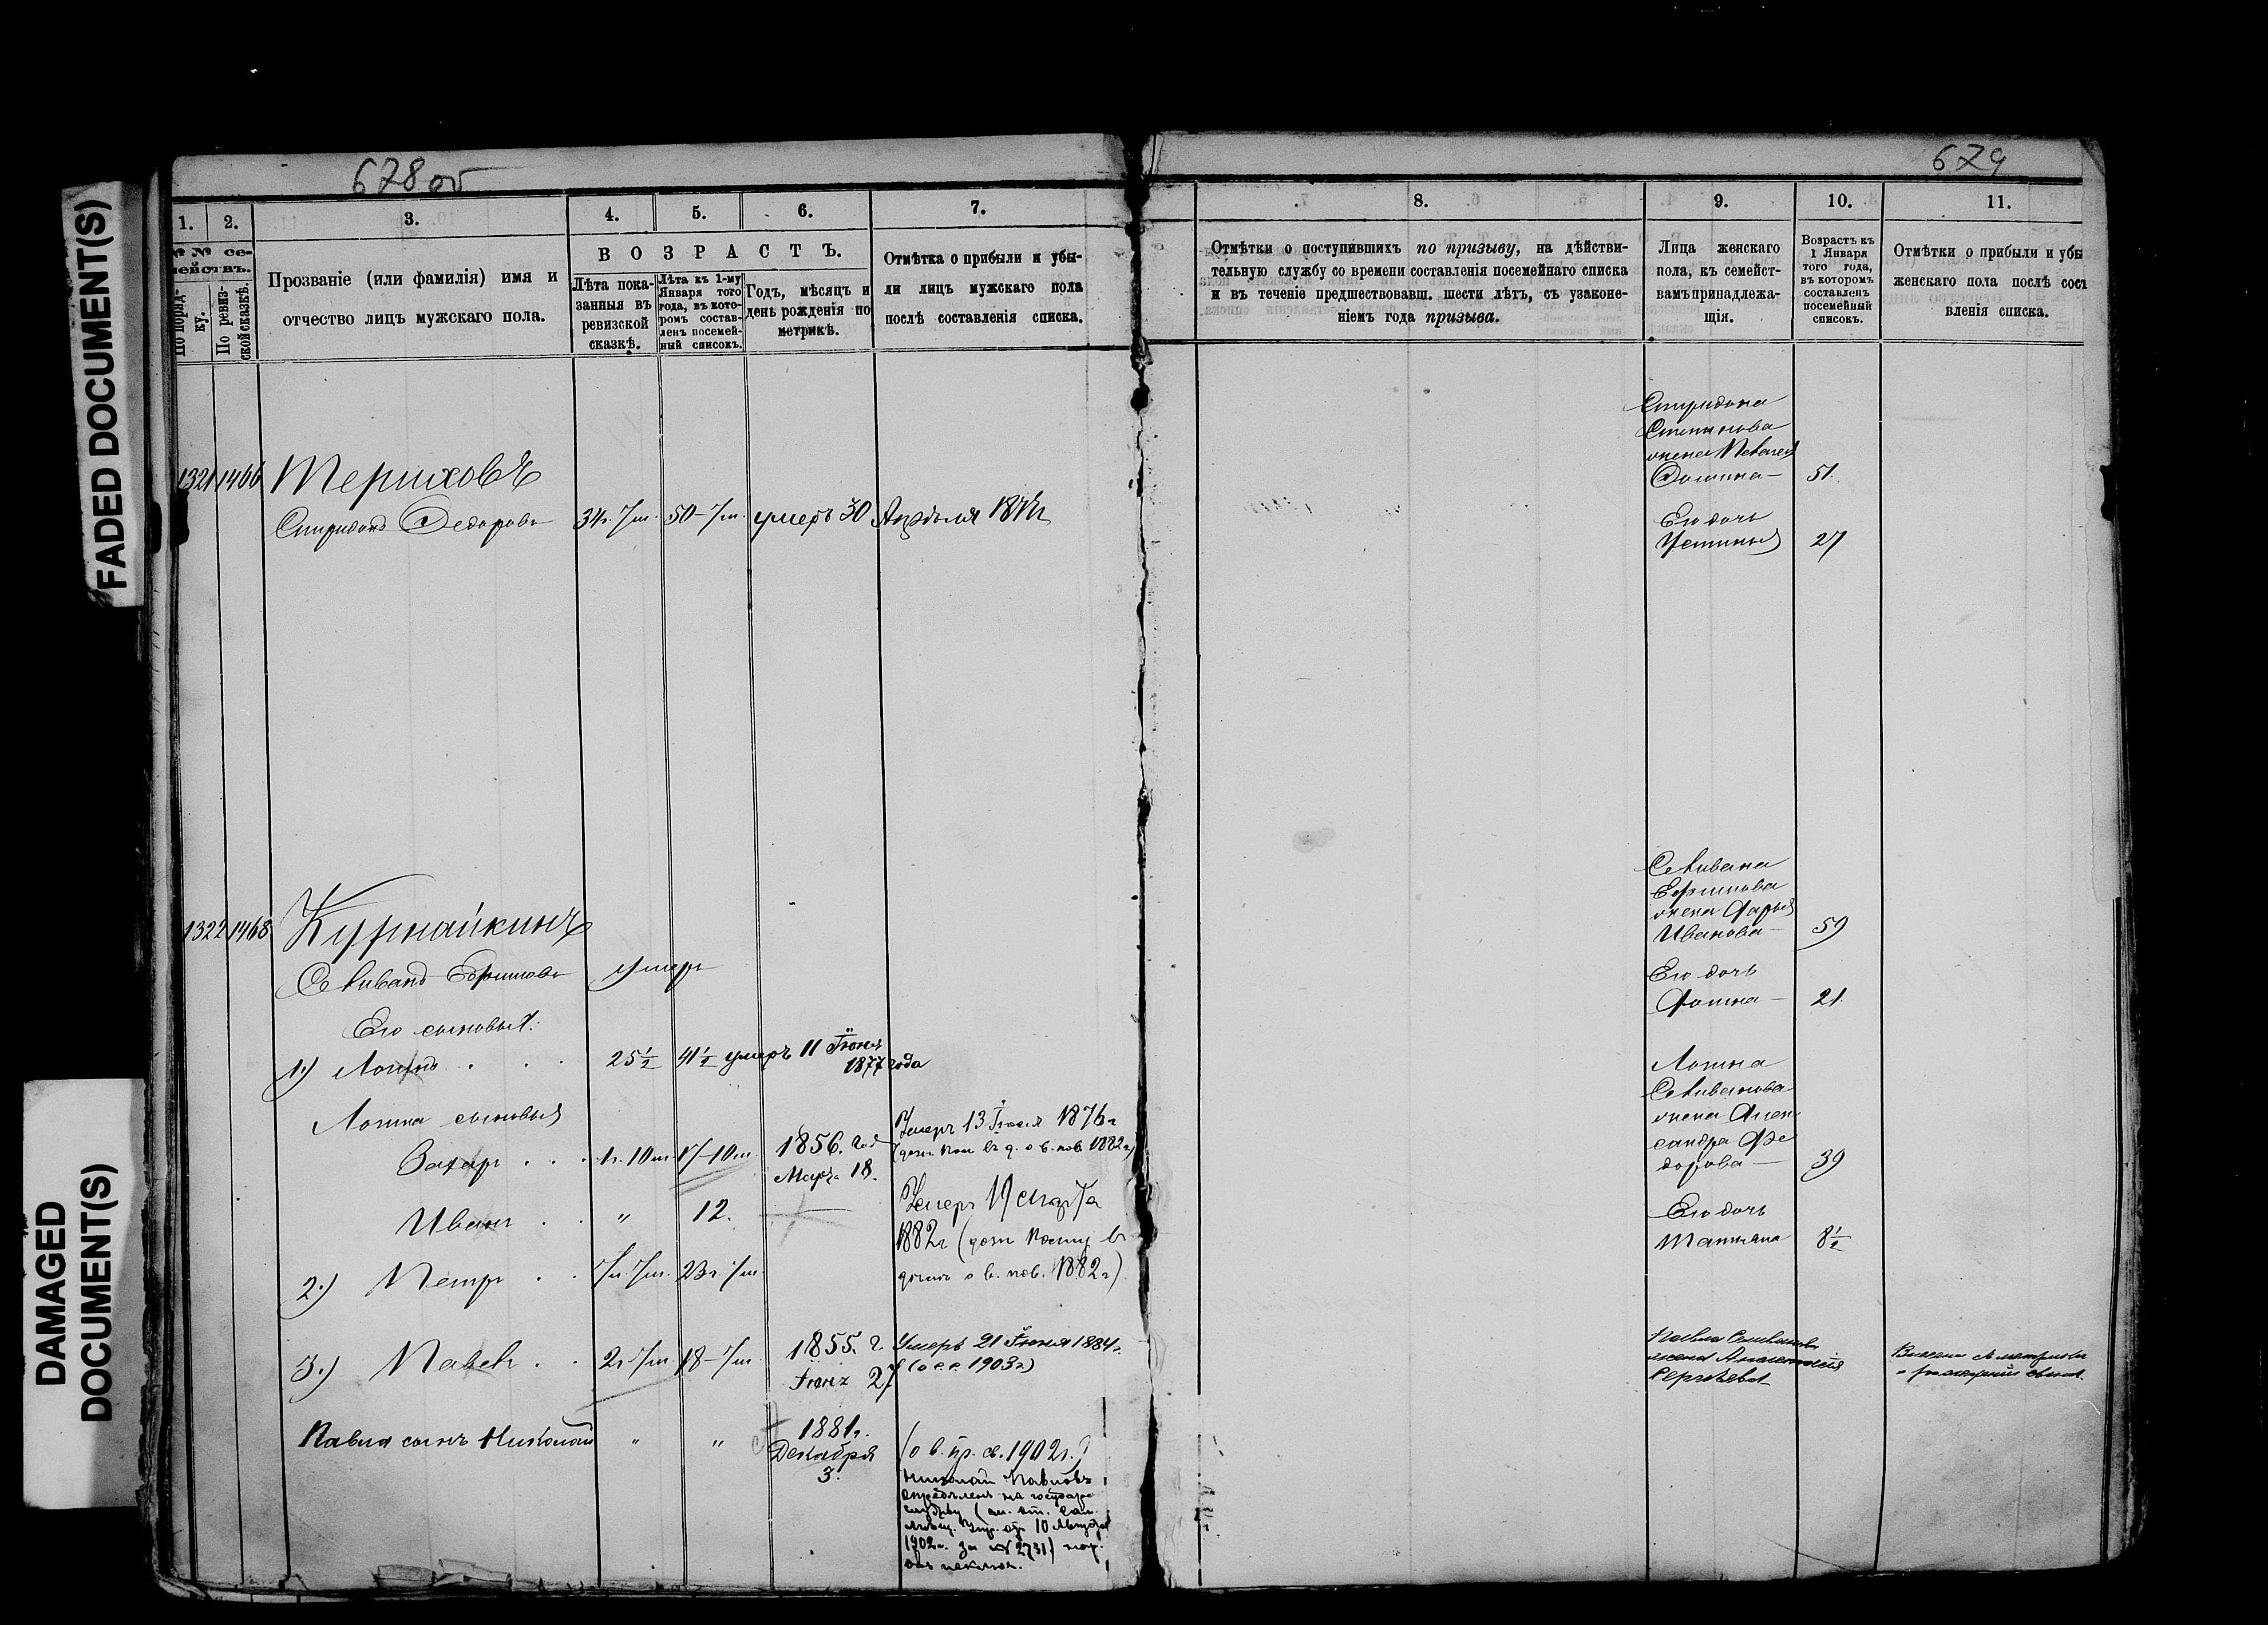 FADED DOCUMENT(S)
DAMAGED
DOCUMENT(S)
678 об
1.
2.
3.
4.
5.
6.
7.
№ № се-
мействъ.
По поряд-
ку.
По ревиз-
ской сказкѣ.
Прозваніе (или фамилія) имя и
отчество лицъ мужскаго пола.
ВОЗРАСТЪ.
Лѣта пока-
занныя въ
ревизской
сказкѣ.
Лѣта къ 1-му
Января того
года, въ кото-
ромъ состав-
ленъ посемей-
ный списокъ.
Годъ, мѣсяцъ и
день рожденія по
метрикѣ.
Отмѣтка о прибыли и убы-
ли лицъ мужскаго пола
послѣ составленія списка.
1321 1466 Териховъ
Спиридонъ Федоровъ 34г. 7м. 50-7м. умеръ 30 Апрѣля
1322 1468 Курнайкинъ
Селиванъ Ефимовъ умеръ
Его сыновья:
1.) Логинъ 25½ 41½ умеръ 11 Іюня
1877 года
Логина сыновья
Захаръ 1г. 10м. 17-10м. 1856. год
Марта 18.
Умеръ 13 Іюля 1876г
1882г)
Иванъ " 12.
Умеръ 17 Марта
1882г
2.) Петръ 7л. 7м. 23г. 7м.
о в. пов. 1882г)
3.) Павелъ 2г. 7м. 18-7м. 1855. г.
27
Умеръ 21 Іюня 1884г.
1903г)
Павла сынъ Николай " " 1881г.
Декабря
3.
(о в. пр. св. 1902г.)
Николай Павловъ
опредѣленъ на государс
службу
10 Августа
1902г. за № 2731)
исключ.
679
8.
9.
10.
11.
Отмѣтки о поступившихъ по призыву, на дѣйстви-
тельную службу со времени составленія посемейнаго списка
и въ теченіе предшествовавш. шести лѣтъ, съ узаконе-
ніемъ года призыва.
Лица женскаго
пола, къ семейст-
вамъ принадлежа-
щія.
Возрастъ къ
1 Января
того года,
въ которомъ
составленъ
посемейный
списокъ.
Отмѣтки о прибыли и убы
женскаго пола послѣ сост
вленія списка.
Спиридона
жена Пелагея
51.
Его дочь
Устинья 27
Селивана
Ефимова
жена Дарья
Иванова 59
Его дочь
Фотина 21.
Логина
Селиванова
жена Алек
сандра Фе
дорова 39
Его дочь
Татьяна 8½
Павла Селиванова
жена Анастасія
Сергѣева